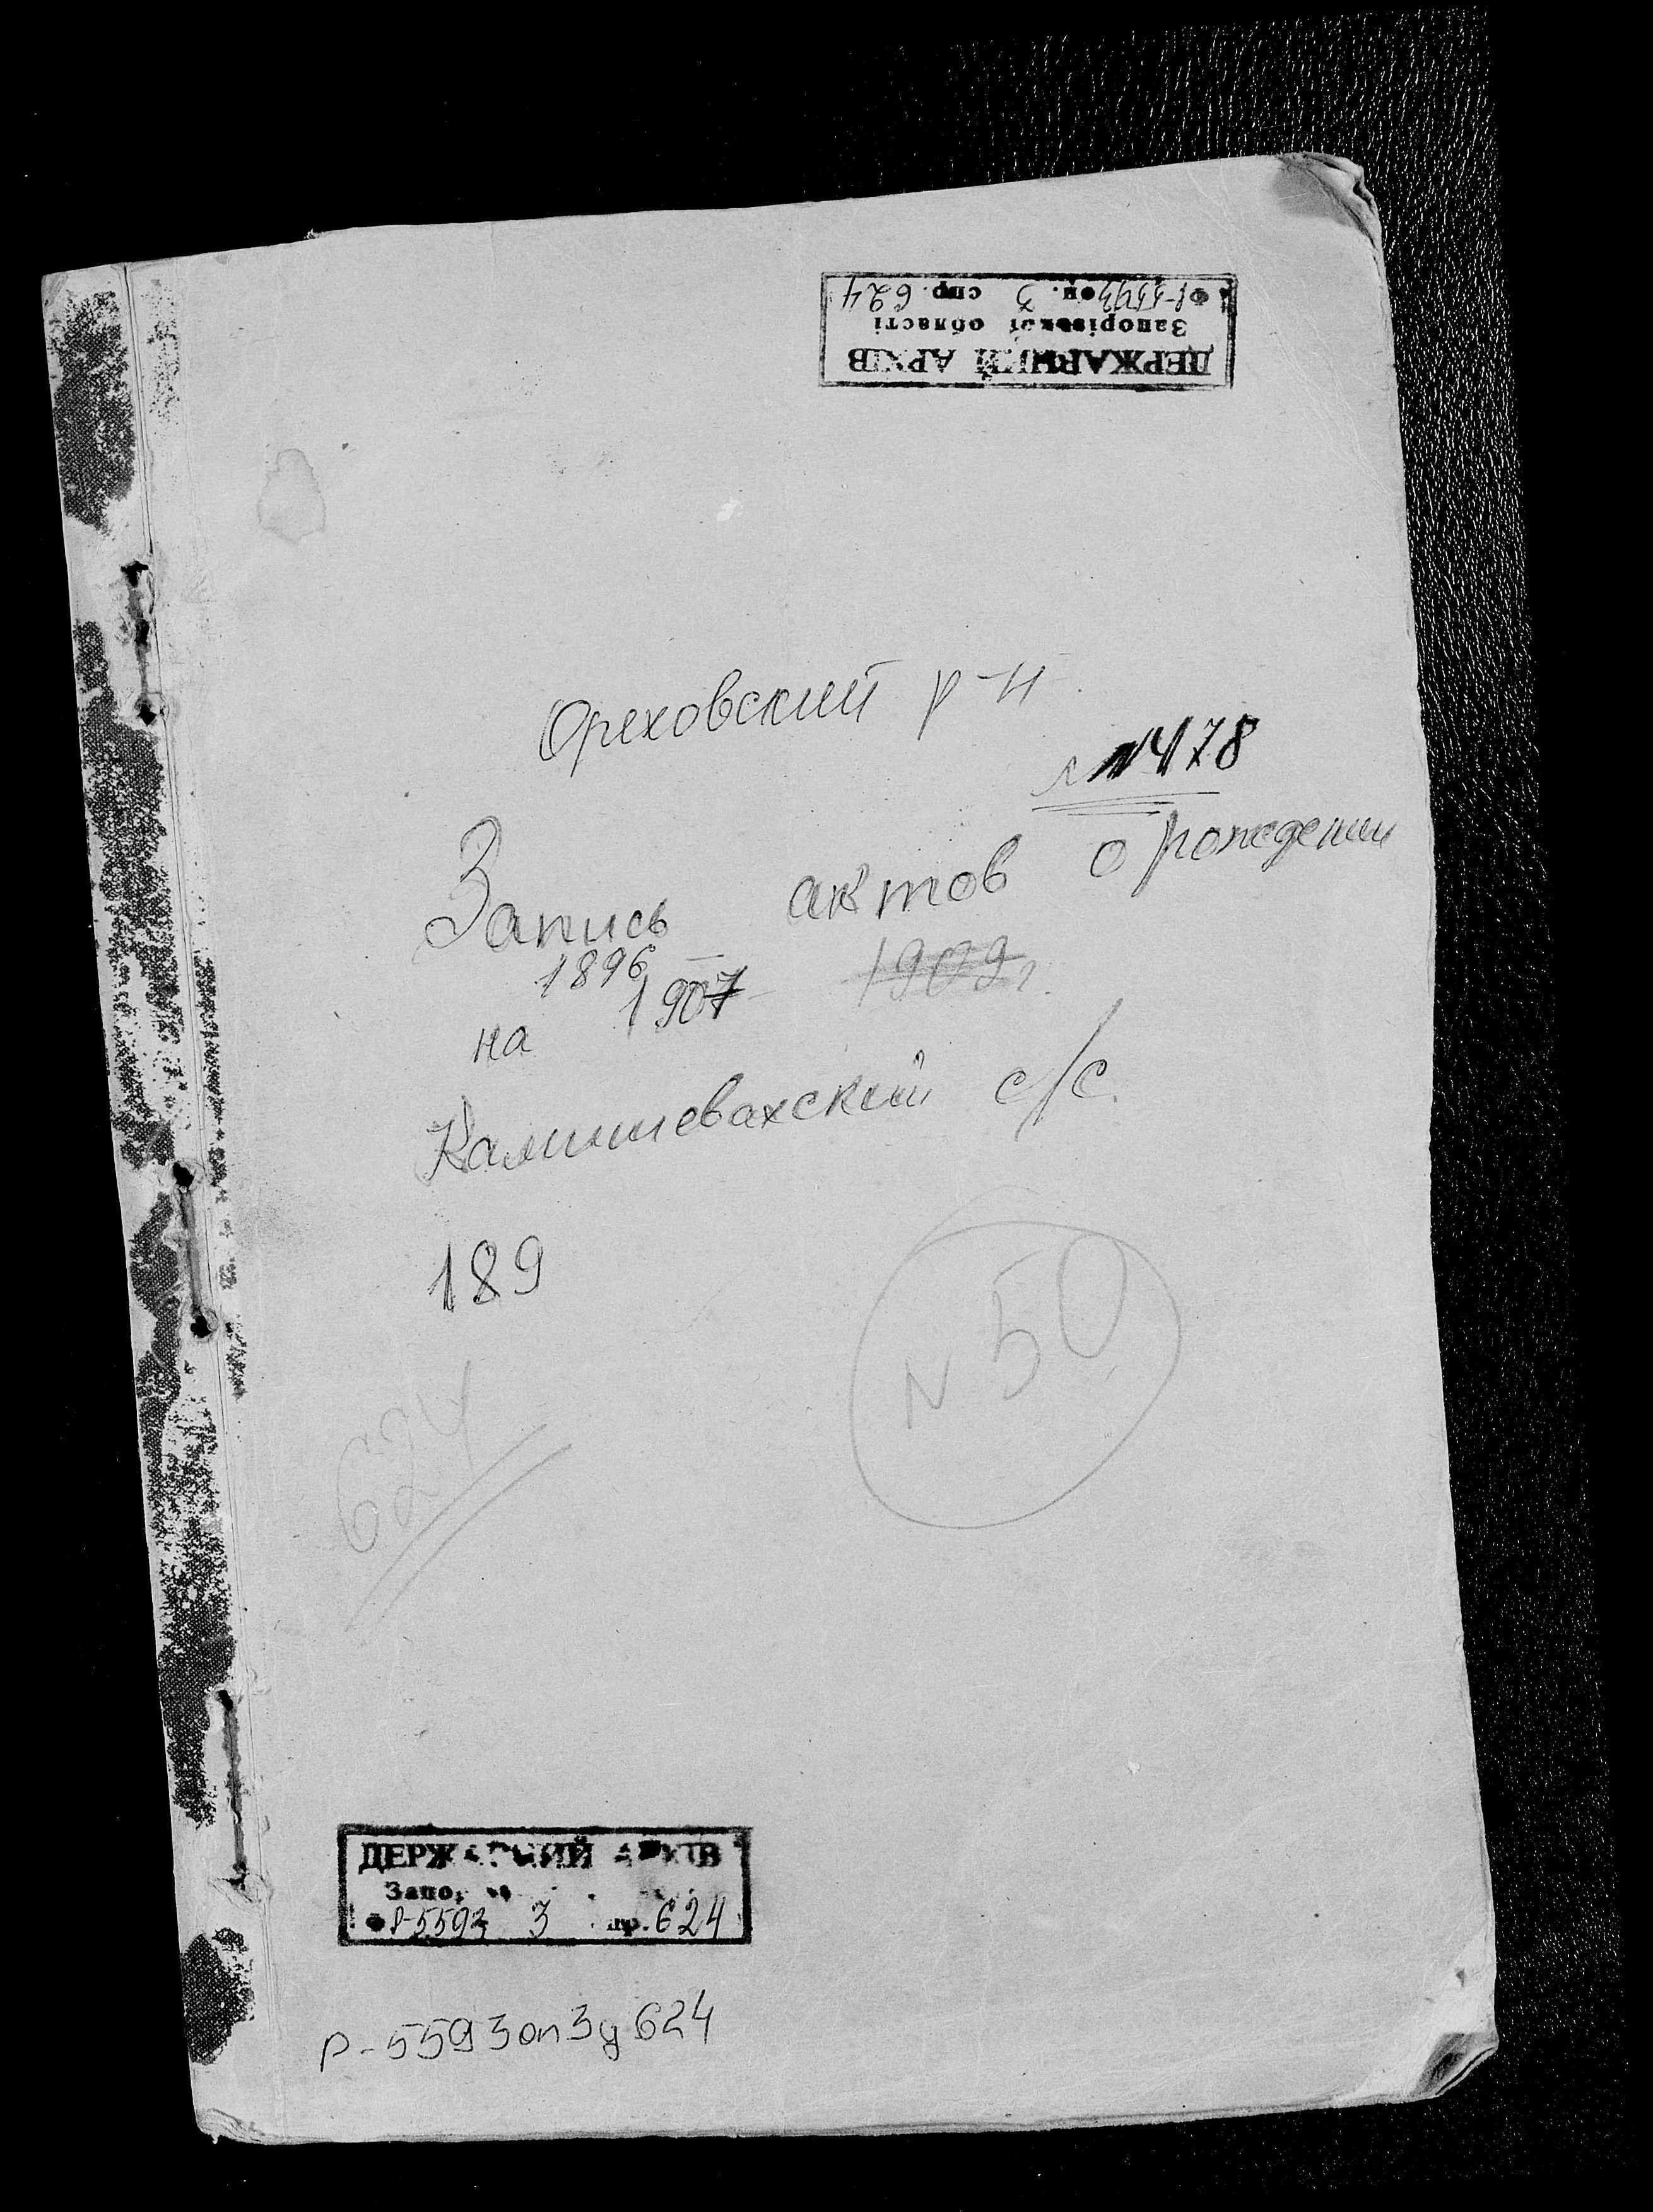 ДЕРЖАВНИЙ АРХІВ
Запорізької області
Ф. Р-5593 оп. 3 спр. 624
Ореховский р-н
N 478
Запись актов о рождении
1896
на 1907 1909 г.
Камышевахский с/с.
189
N 50
624
ДЕРЖАВНИЙ АРХІВ
Ф Р-5593 3 спр. 624
Р-5593 оп 3 д 624